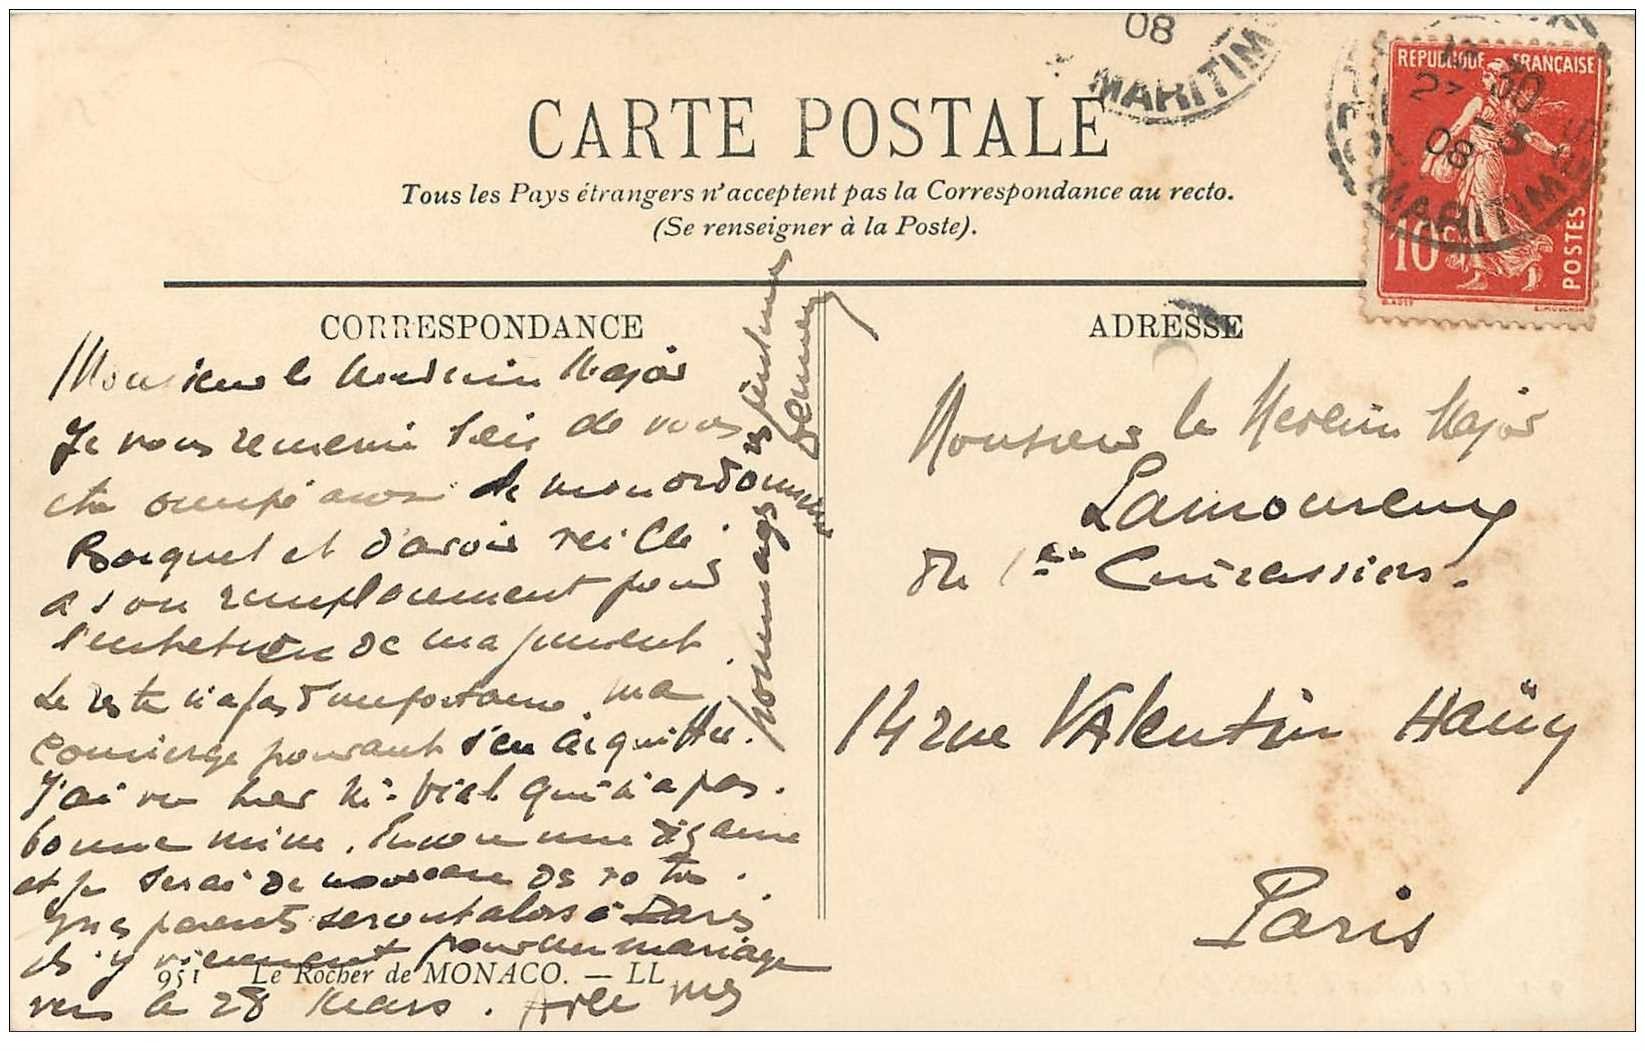 CARTE POSTALE
Tous les Pays étrangers n'acceptent pas la Correspondance au recto.
(Se renseigner à la Poste).
08
MARITIM
REPUBLIQUE FRANÇAISE
10c
POSTES
08
MARITIMES
CORRESPONDANCE
Monsieur le Médecin Major
Je vous remercie bien de vous
être occupé ainsi de mon ordonnance
Bocquet et d'avoir veillé
a son remplacement pour
l'entretien de ma jument.
Le reste n'a pas d'importance ma
concierge pouvant s'en acquitter.
J'ai vu hier qui n'a pas
bonne mine. Encore une dizaine
et je serai de nouveau des vôtres.
Mes parents seront alors à Paris
ils y viennent pour un mariage
vers le 28 Mars. Avec mes
hommages
ADRESSE
Monsieur le Médecin Major
Lamoureux
du 1er Cuirassiers.
14 rue Valentin Haüy
Paris
951 Le Rocher de MONACO. — LL